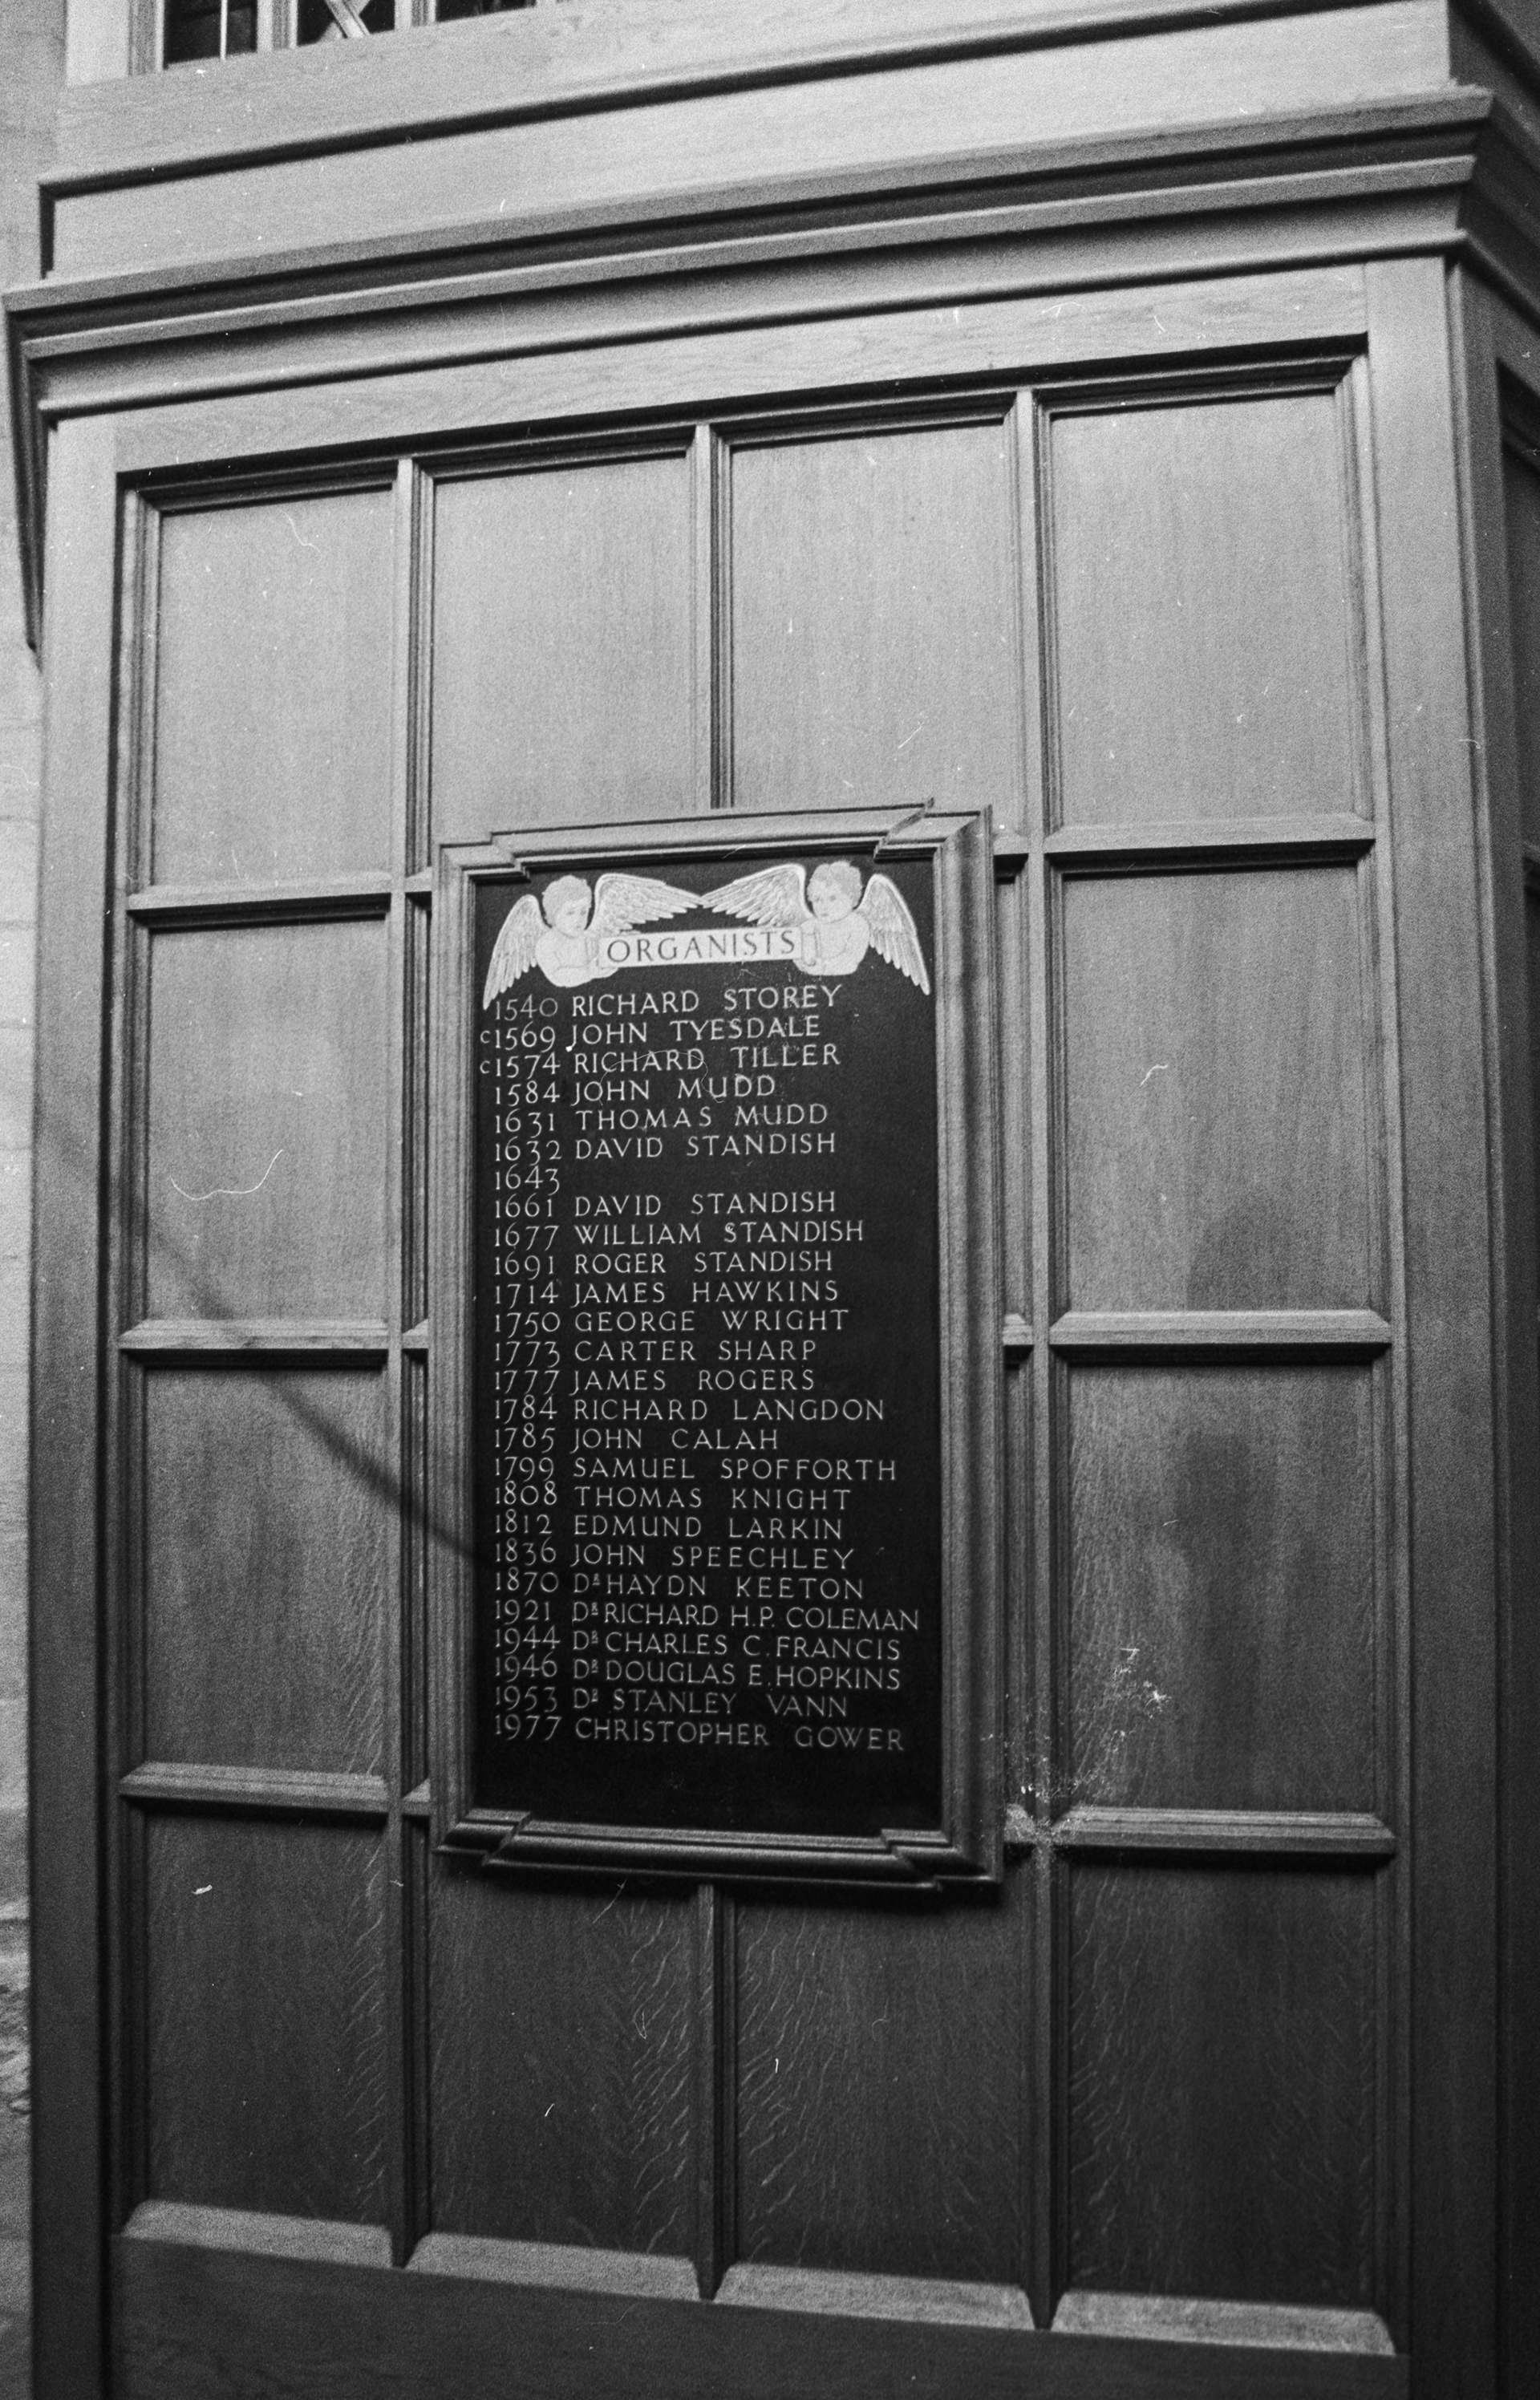 ORGANISTS
1540 RICHARD STOREY
c1569 JOHN TYESDALE
c1574 RICHARD TILLER
1584 JOHN MUDD
1631 THOMAS MUDD
1632 DAVID STANDISH
1643
1661 DAVID STANDISH
1677 WILLIAM STANDISH
1691 ROGER STANDISH
1714 JAMES HAWKINS
1750 GEORGE WRIGHT
1773 CARTER SHARP
1777 JAMES ROGERS
1784 RICHARD LANGDON
1785 JOHN CALAH
1799 SAMUEL SPOFFORTH
1808 THOMAS KNIGHT
1812 EDMUND LARKIN
1836 JOHN SPEECHLEY
1870 DR HAYDN KEETON
1921 DR RICHARD H.P. COLEMAN
1944 DR CHARLES C. FRANCIS
1946 DR DOUGLAS E. HOPKINS
1953 DR STANLEY VANN
1977 CHRISTOPHER GOWER